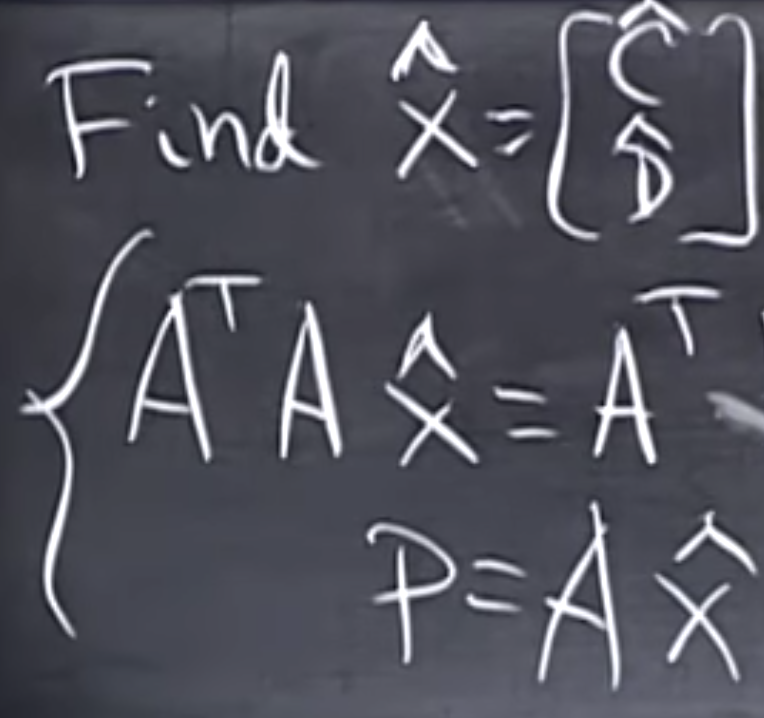 Find x̂ = [Ĉ
D̂]
Aᵀ A x̂ = Aᵀ
P = A x̂